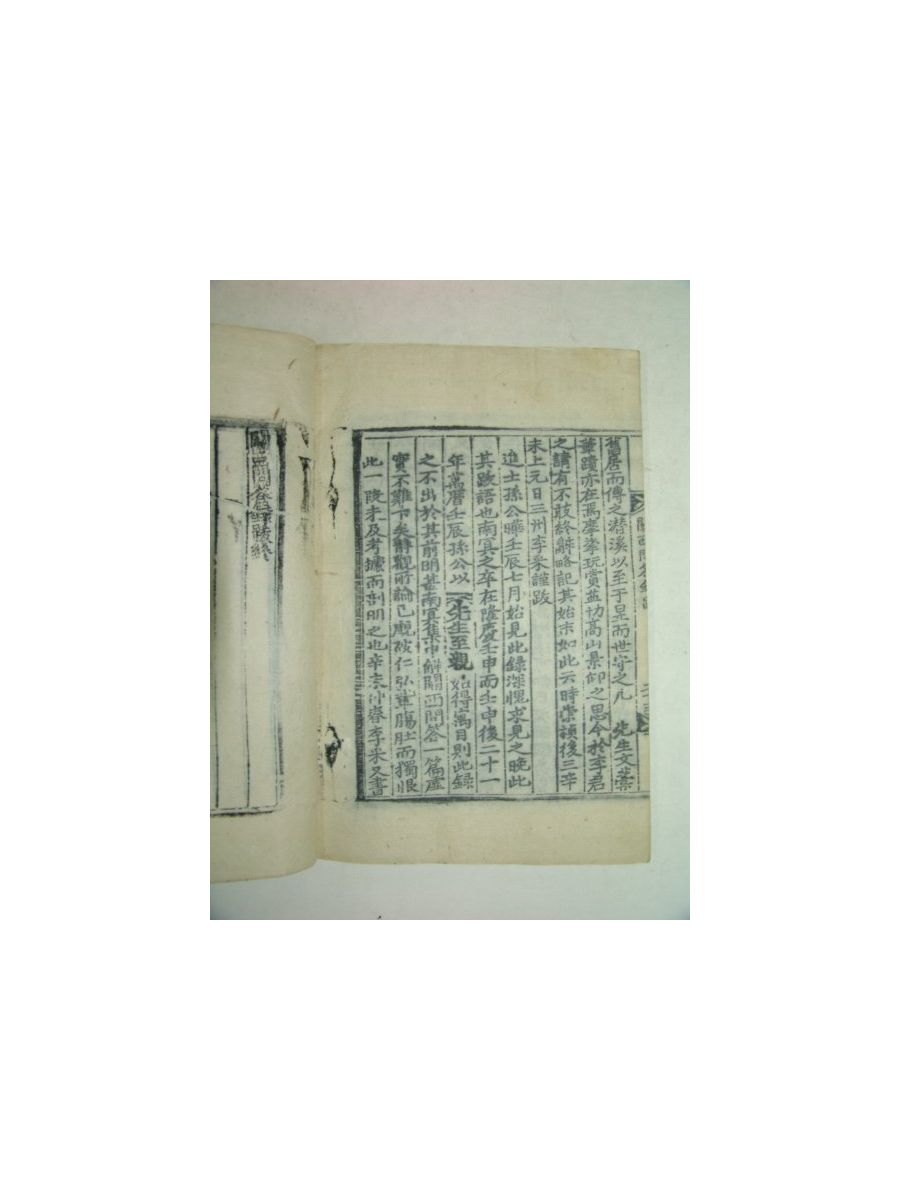 舊居而傳之潛溪以至于㫤而世守之凡 先生文藁
筆蹟亦在焉摩挲玩賞益切高山景仰之思今於李君
之請有不敢終辭略記其始末如此云時崇禎後三辛
未上元日三州李采謹跋
進士孫公曄壬辰七月始見此錄深愧求見之晚此
其跋語也南冥之卒在隆慶壬申而壬申後二十一
年萬曆壬辰孫公以 先生至親始得寓目則此錄
之不出於其前明甚南冥集中解關西問答一篇虛
實不難卞矣靜觀所論已覷破仁弘輩腸肚而獨恨
此一段未及考據而剖明之也辛未仲春李采又書
關西問答錄跋終